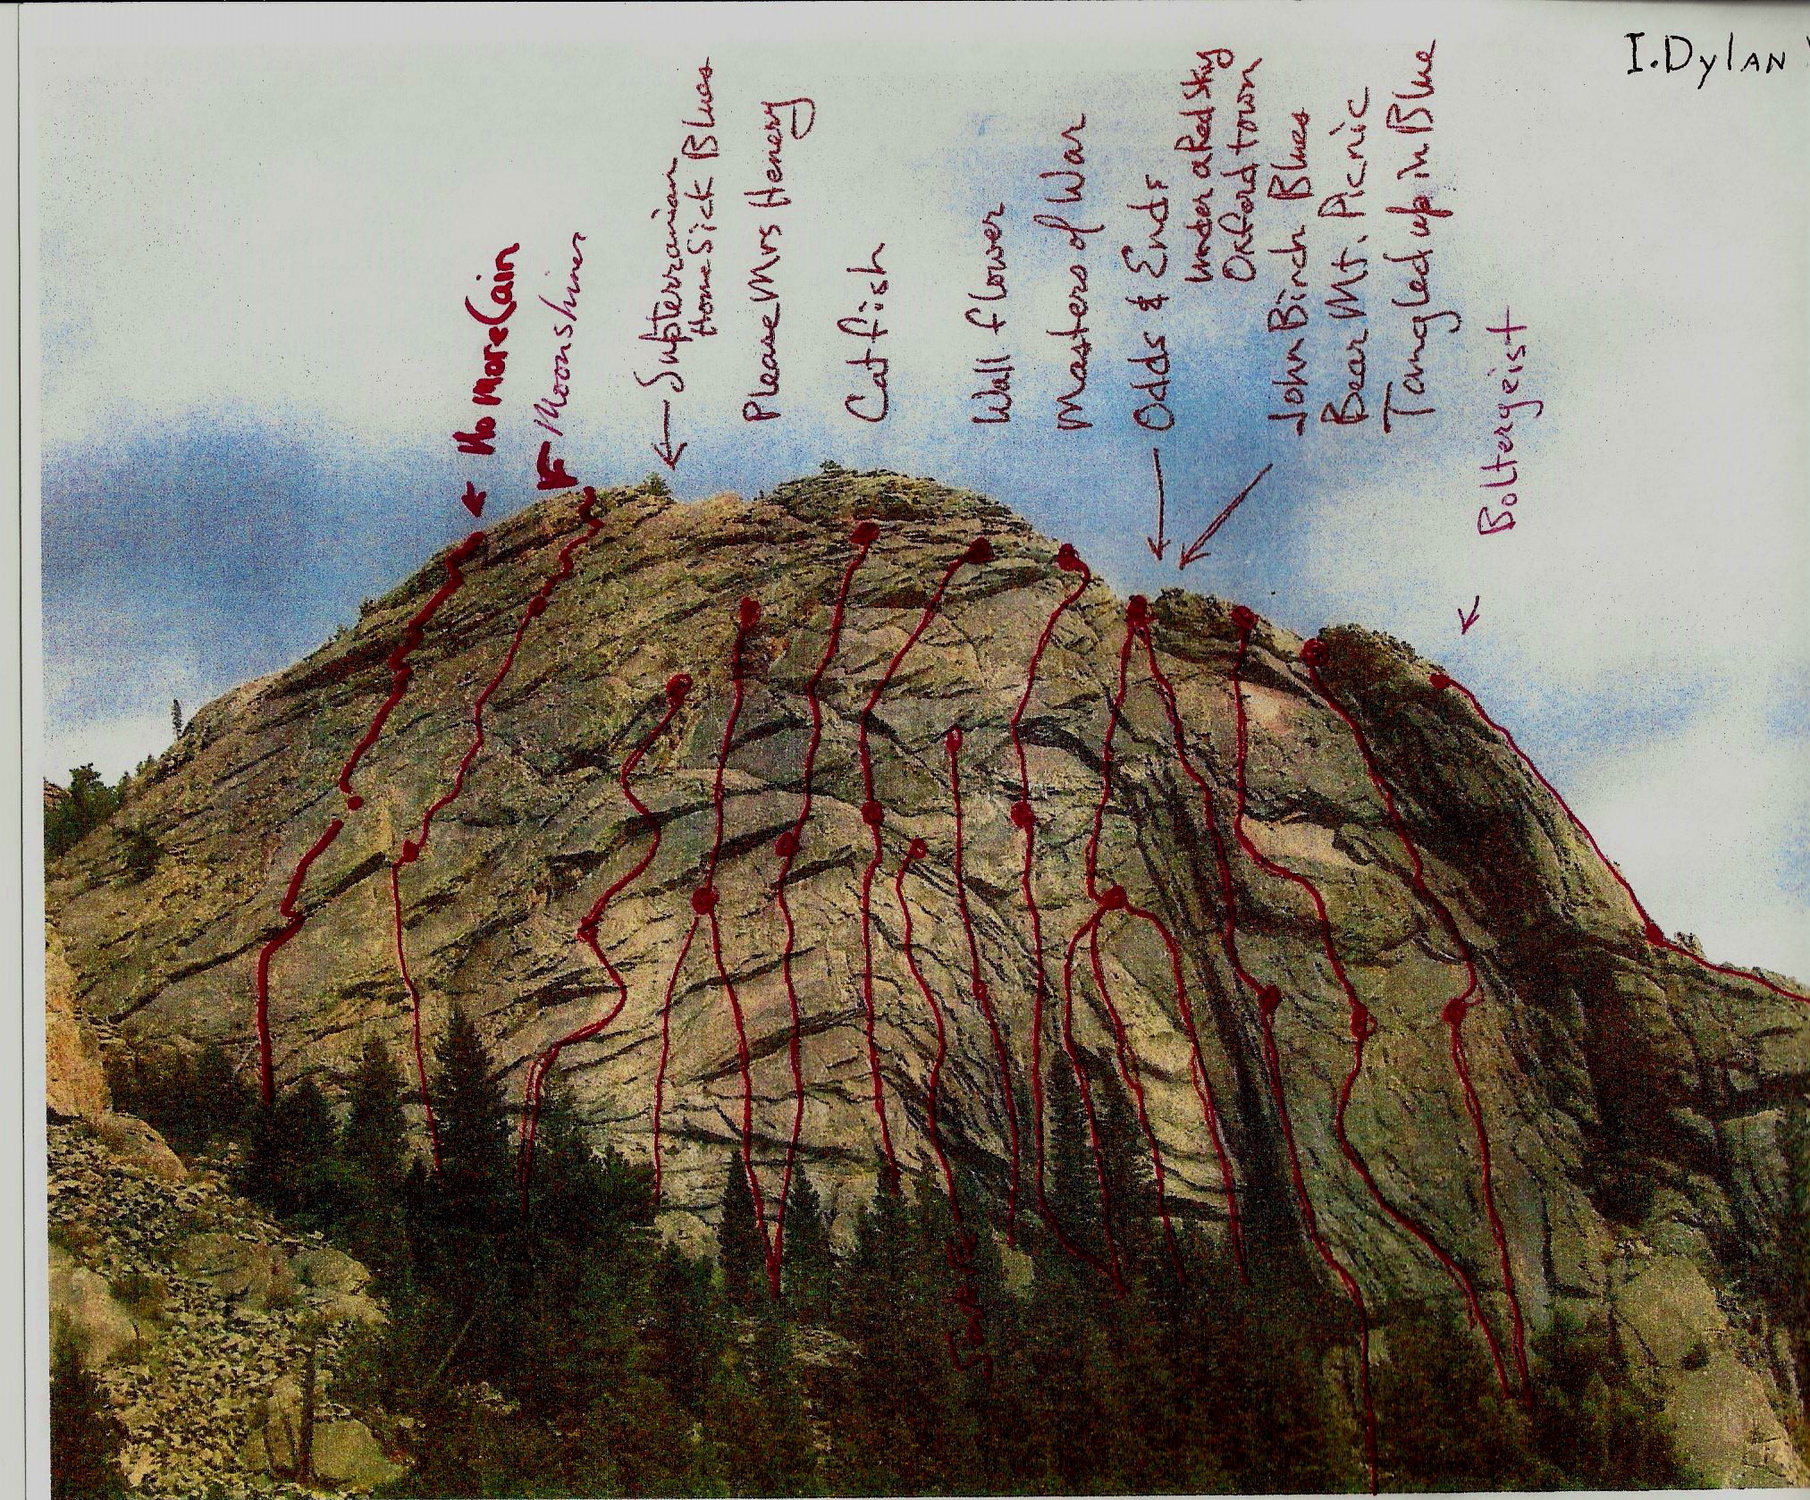 I. Dylan
No More Cain
Moonshiner
Subterranian
Home Sick Blues
Please Mrs Henery
Catfish
Wall flower
Masters of War
Odds & Ends
Under a Red Sky
Oxford town
John Birch Blues
Bear Mt. Picnic
Tangled up in Blue
Boltergeist